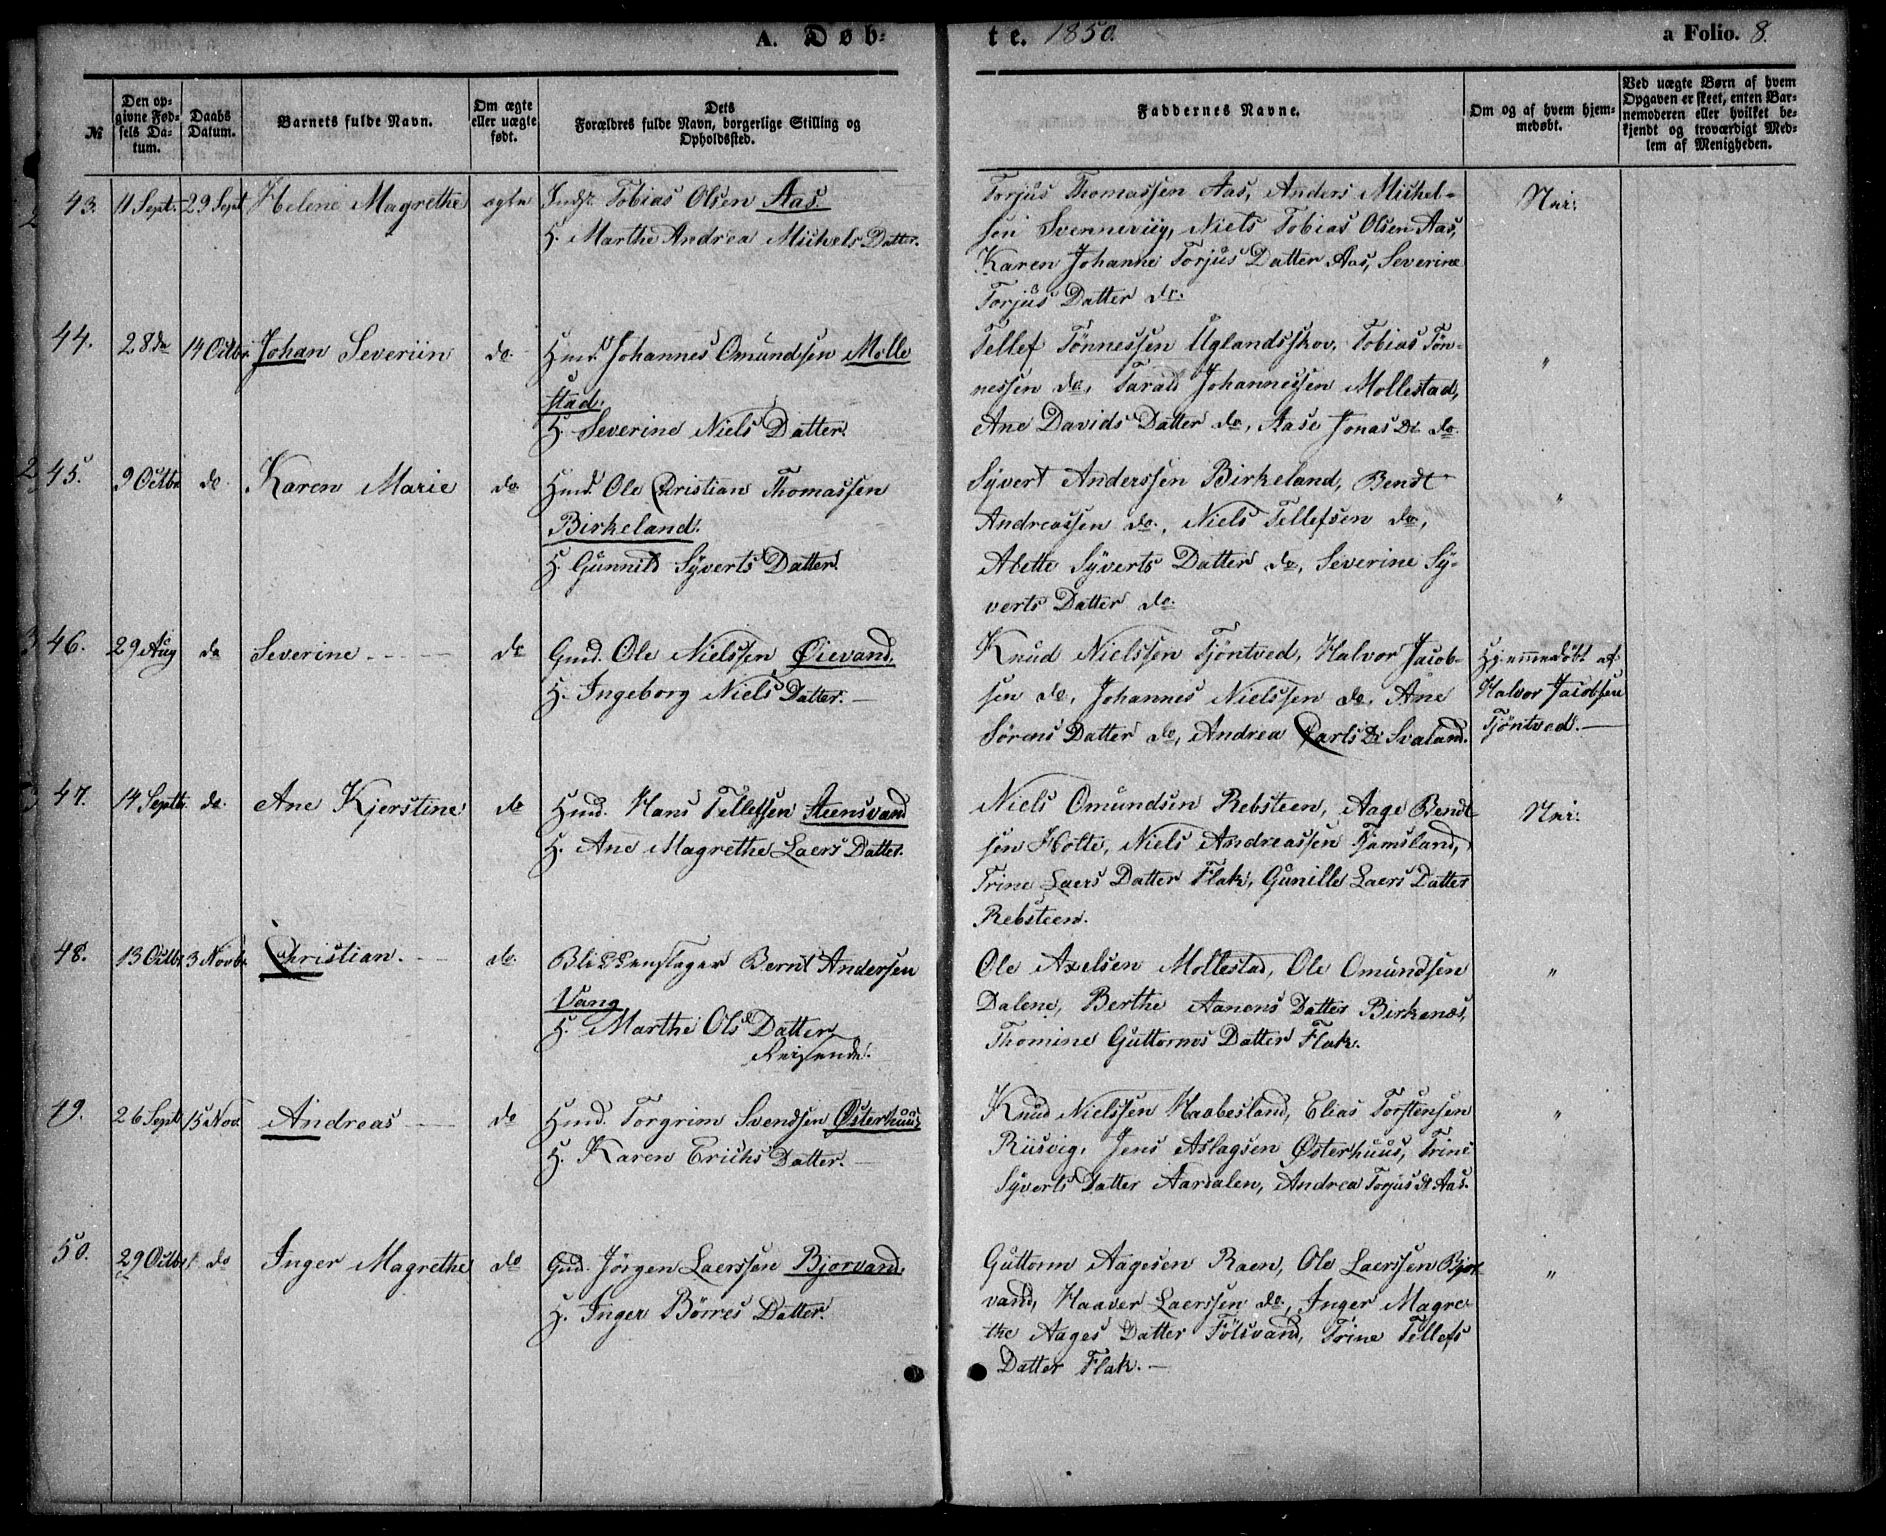 A. Døb- te. 1850. a Folio. 8.
№
Den opgivne Fødsels Datum.
Daabs Datum.
Barnets fulde Navn.
Om ægte eller uægte født.
Dets Forældres fulde Navn, borgerlige Stilling og Opholdssted.
Faddernes Navne.
Om og af hvem hjemmedøbt.
Ved uægte Børn af hvem Opgaven er skeet, enten Barnemoderen eller hvilket bekjendt og troværdigt Medlem af Menigheden.
43. 11 Sept. 29 Sept Helene Magrethe ægte
Inds. Tobias Olsen Aas.
H. Marthe Andrea Michels Datter.
Torjus Thomassen Aas, Anders Michel-
sen Svennevig, Niels Tobias Olsen Aas,
Karen Johanne Torjus Datter Aas, Severine
Torjus Datter do.
Nei.
44. 28 do 14 Octbr. Johan Severiin do.
Hmd. Johannes Omundsen Molle
stad.
H. Severine Niels Datter.
Tellef Tønnessen Uglandsskov, Tobias Tøn-
nessen do, Tarald Johannessen Mollestad,
Ane Davids Datter do, Aase Jonas Dt do.
"
45. 9 Octbr do. Karen Marie do
Hmd. Ole Christian Thomassen
Birkeland.
H. Gunnild Syverts Datter.
Syvert Anderssen Birkeland, Bendt
Andreassen do., Niels Tellefsen do,
Alette Syverts Datter do, Severine Sy-
verts Datter do.
"
46. 29 Aug do Severine. do
Gmd. Ole Nielssen Øievand.
H. Ingeborg Niels Datter.
Knud Nielssen Tjøntved, Halvor Jacob-
sen do, Johannes Nielssen do, Ane
Sørens Datter do, Andrea Carls Dt Svaland.
Hjemmedøbt af
Halvor Jacobsen
Tjøntved.
47. 14 Septb. do. Ane Kjerstine do
Hmd. Hans Tellefsen Steensvand
H. Ane Magrethe Laers Datter.
Niels Omundsen Rebsteen, Aage Bendt-
sen Holte, Niels Andreassen Tjomsland,
Trine Laers Datter Flak, Gunille Laers Datter
Rebsteen.
Nei.
48. 13 Octbr. 3 Novbr. Christian. do.
Blikkenslager Bernt Andersen
Vang
H. Marthe Ols Datter
Reisende.
Ole Axelsen Mollestad, Ole Omundsen
Dalene, Berthe Aanens Datter Birkenes,
Thomine Guttorms Datter Flak.
"
49. 26 Sept 15 Nov. Andreas do
Hmd. Torgrim Svendsen Østerhuus
H. Karen Erichs Datter.
Knud Nielssen Haabesland, Elias Torstensen
Riisvig, Jens Aslagsen Østerhuus, Trine
Syverts Datter Aardalen, Andrea Torjus dt Aas.
"
50. 29 Octbr. do Inger Magrethe do
Gmd. Jørgen Laerssen Bjorvand.
H. Inger Børres Datter.
Guttorm Aagesen Raen, Ole Laerssen Bjor-
vand, Haaver Laerssen do, Inger Magre-
the Aages Datter Følsvand, Trine Tellefs
Datter Flak.
"